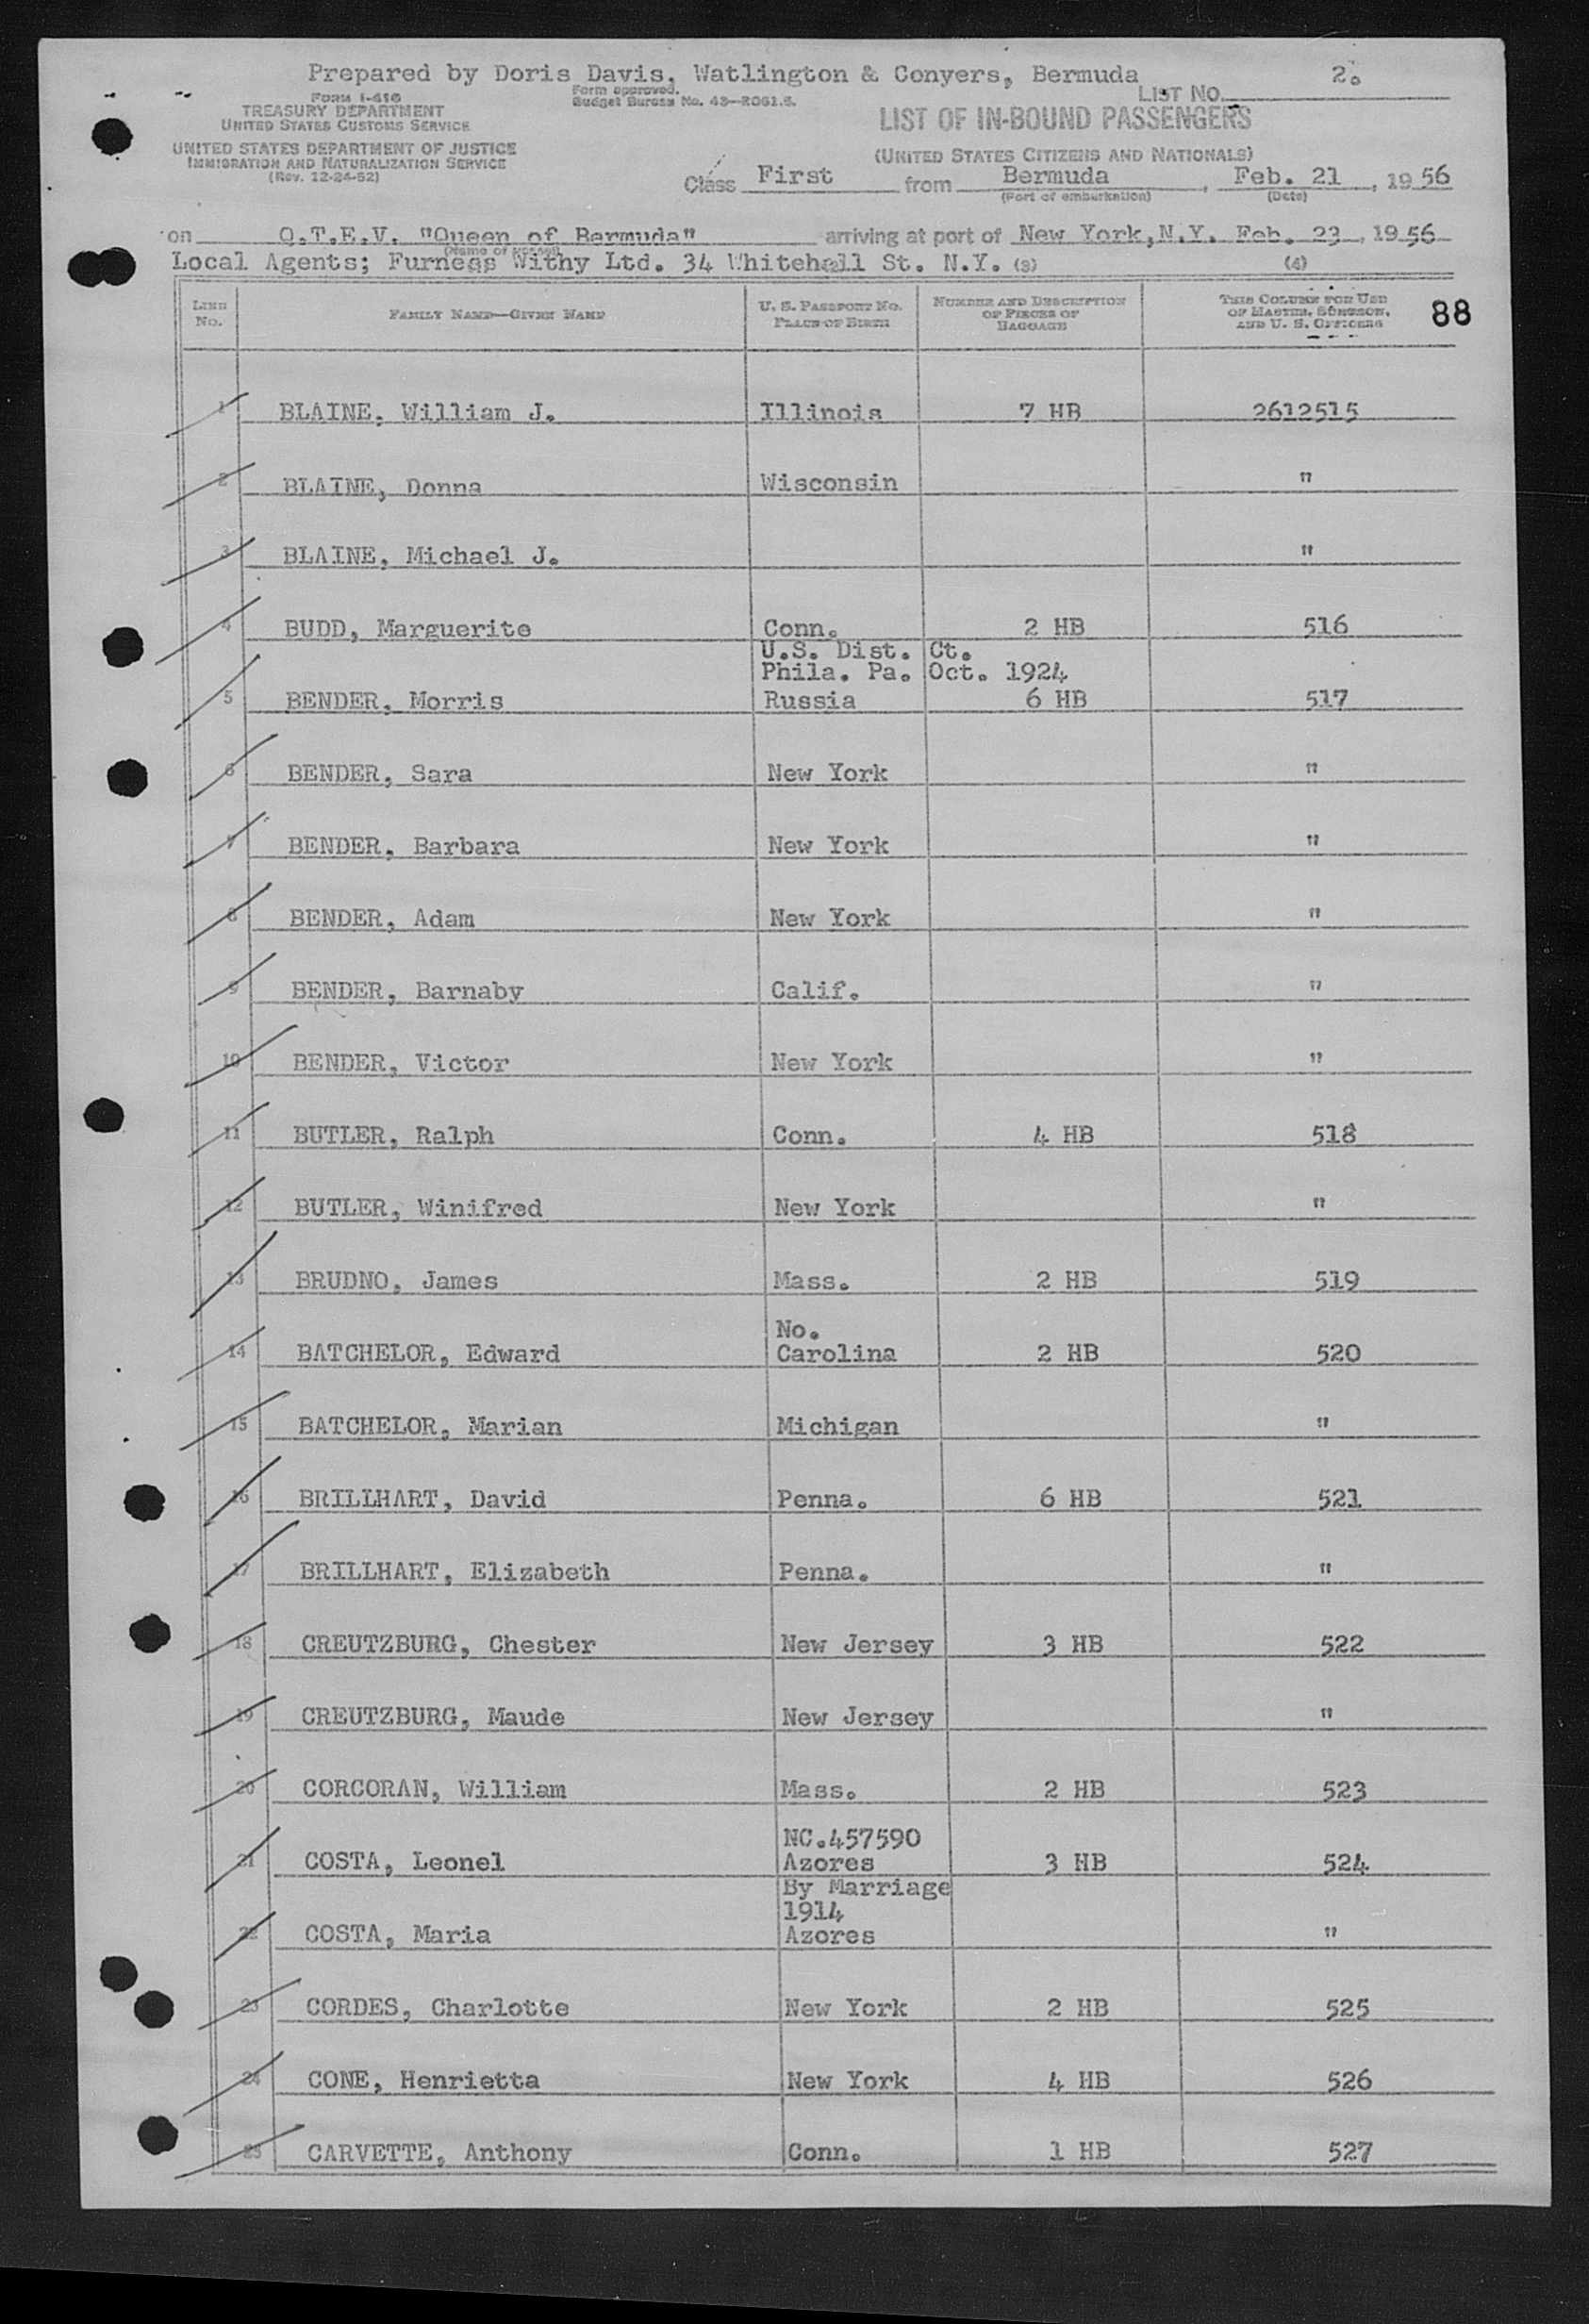 Prepared by Doris Davis, Watlington & Conyers, Bermuda 2.
FORM I-418 Form approved. LIST NO.
TREASURY DEPARTMENT Budget Bureau No. 43—R061.5. LIST OF IN-BOUND PASSENGERS
UNITED STATES CUSTOMS SERVICE
UNITED STATES DEPARTMENT OF JUSTICE (UNITED STATES CITIZENS AND NATIONALS)
IMMIGRATION AND NATURALIZATION SERVICE
(Rev. 12-24-52)
Class First from Bermuda, Feb. 21, 1956
(Port of embarkation) (Date)
on Q.T.E.V. "Queen of Bermuda" arriving at port of New York, N.Y. Feb. 23, 1956
(Name of vessel)
Local Agents; Furness Withy Ltd. 34 Whitehall St. N.Y. (3) (4)
LINE NO. FAMILY NAME—GIVEN NAME U. S. PASSPORT NO. PLACE OF BIRTH NUMBER AND DESCRIPTION OF PIECES OF BAGGAGE THIS COLUMN FOR USE OF MASTER, SURGEON, AND U. S. OFFICERS 88
1 BLAINE, William J. Illinois 7 HB 2612515
2 BLAINE, Donna Wisconsin "
3 BLAINE, Michael J. "
4 BUDD, Marguerite Conn. 2 HB 516
U.S. Dist. Ct.
Phila. Pa. Oct. 1924
5 BENDER, Morris Russia 6 HB 517
6 BENDER, Sara New York "
7 BENDER, Barbara New York "
8 BENDER, Adam New York "
9 BENDER, Barnaby Calif. "
10 BENDER, Victor New York "
11 BUTLER, Ralph Conn. 4 HB 518
12 BUTLER, Winifred New York "
13 BRUDNO, James Mass. 2 HB 519
No.
14 BATCHELOR, Edward Carolina 2 HB 520
15 BATCHELOR, Marian Michigan "
16 BRILLHART, David Penna. 6 HB 521
17 BRILLHART, Elizabeth Penna. "
18 CREUTZBURG, Chester New Jersey 3 HB 522
19 CREUTZBURG, Maude New Jersey "
20 CORCORAN, William Mass. 2 HB 523
NC.457590
21 COSTA, Leonel Azores 3 HB 524
By Marriage
1914
22 COSTA, Maria Azores "
23 CORDES, Charlotte New York 2 HB 525
24 CONE, Henrietta New York 4 HB 526
25 CARVETTE, Anthony Conn. 1 HB 527